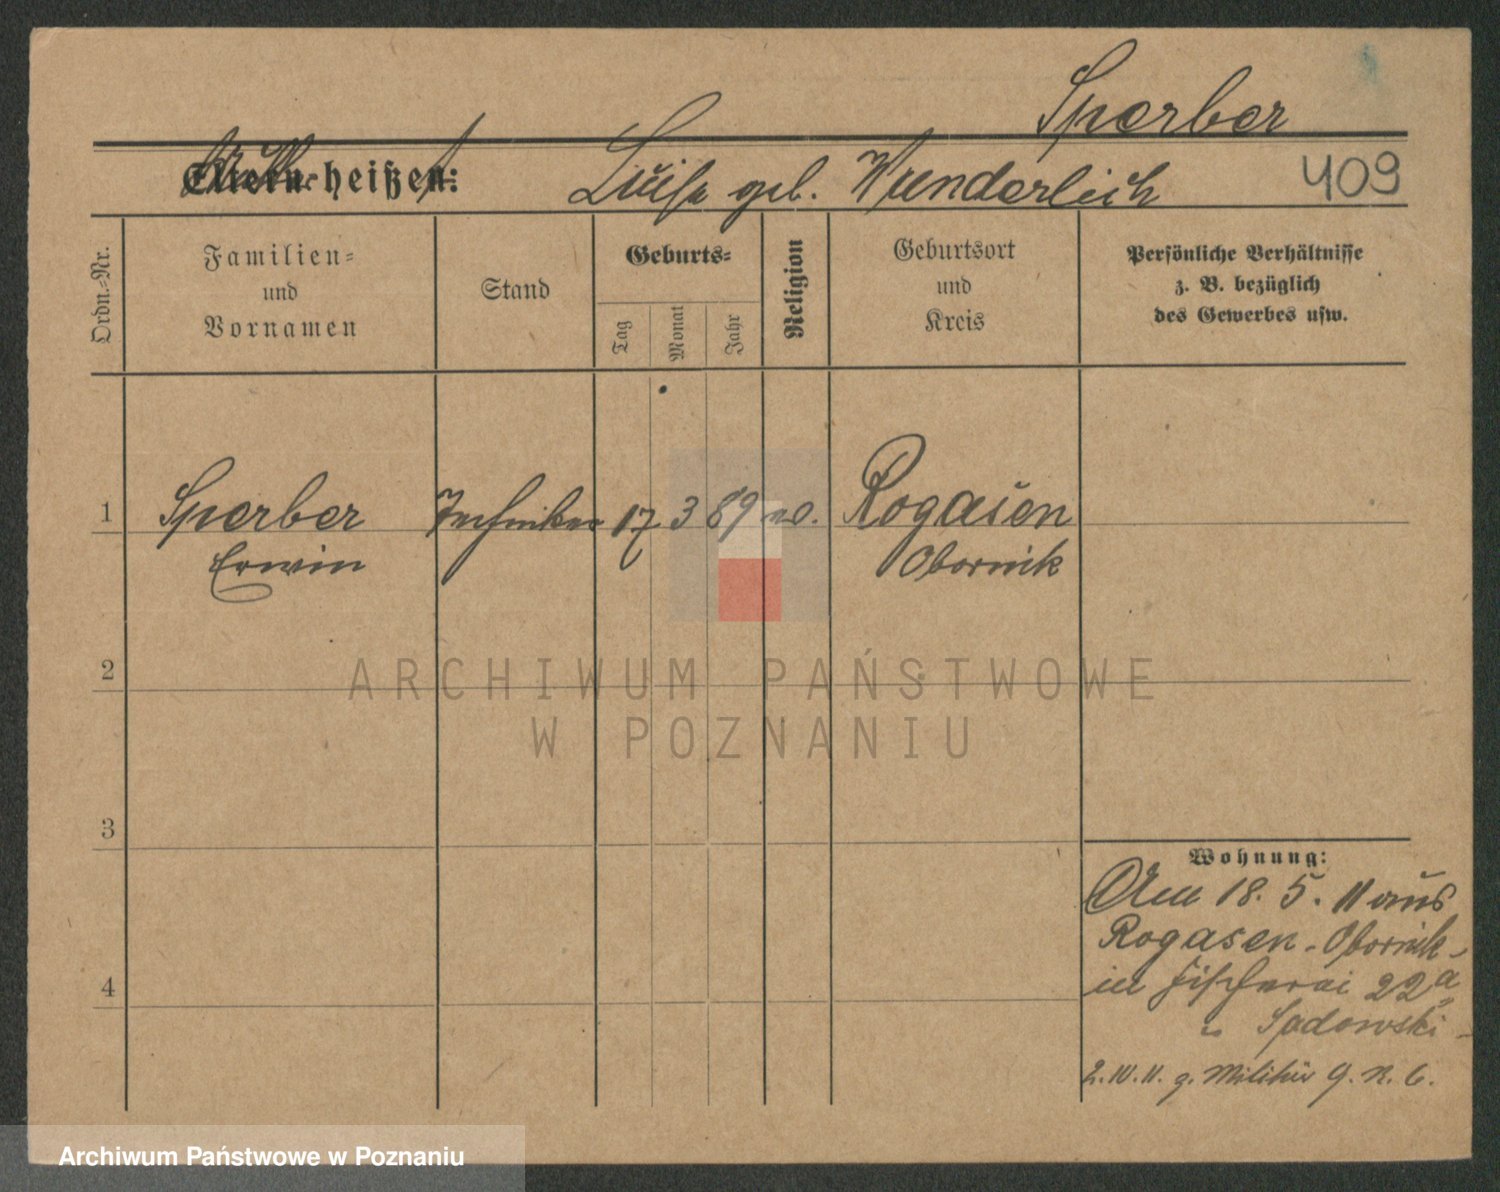 Sperber
Eltern heißen: Luise geb. Wunderlich 409
Ordn.-Nr.
Familien-
und
Vornamen
Stand
Geburts-
Tag
Monat
Jahr
Religion
Geburtsort
und
Kreis
Persönliche Verhältnisse
z. B. bezüglich
des Gewerbes usw.
1 Sperber Techniker 17 3 89 Rogasen
Erwin Obornik
2
3
4
Wohnung:
Am 18. 5. 11 aus
Rogasen - Obornik -
in Fischerei 22a
Sadowski
2.10.11. z. Militär
ARCHIWUM PAŃSTWOWE
W POZNANIU
Archiwum Państwowe w Poznaniu